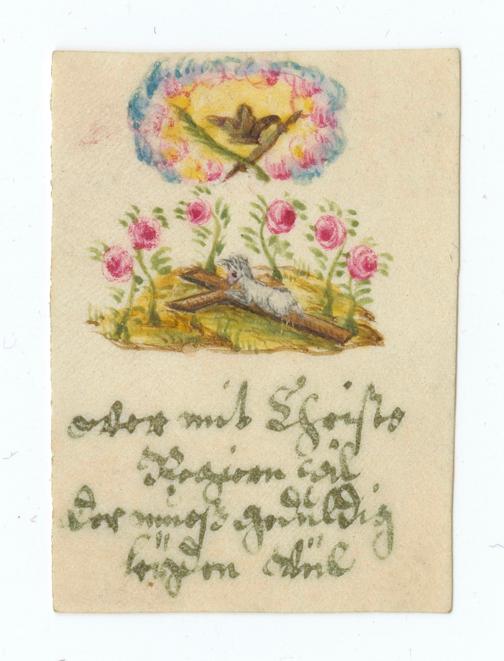 oder mit Christo
Regiern wil
der muoß gedüldig
leyden vill